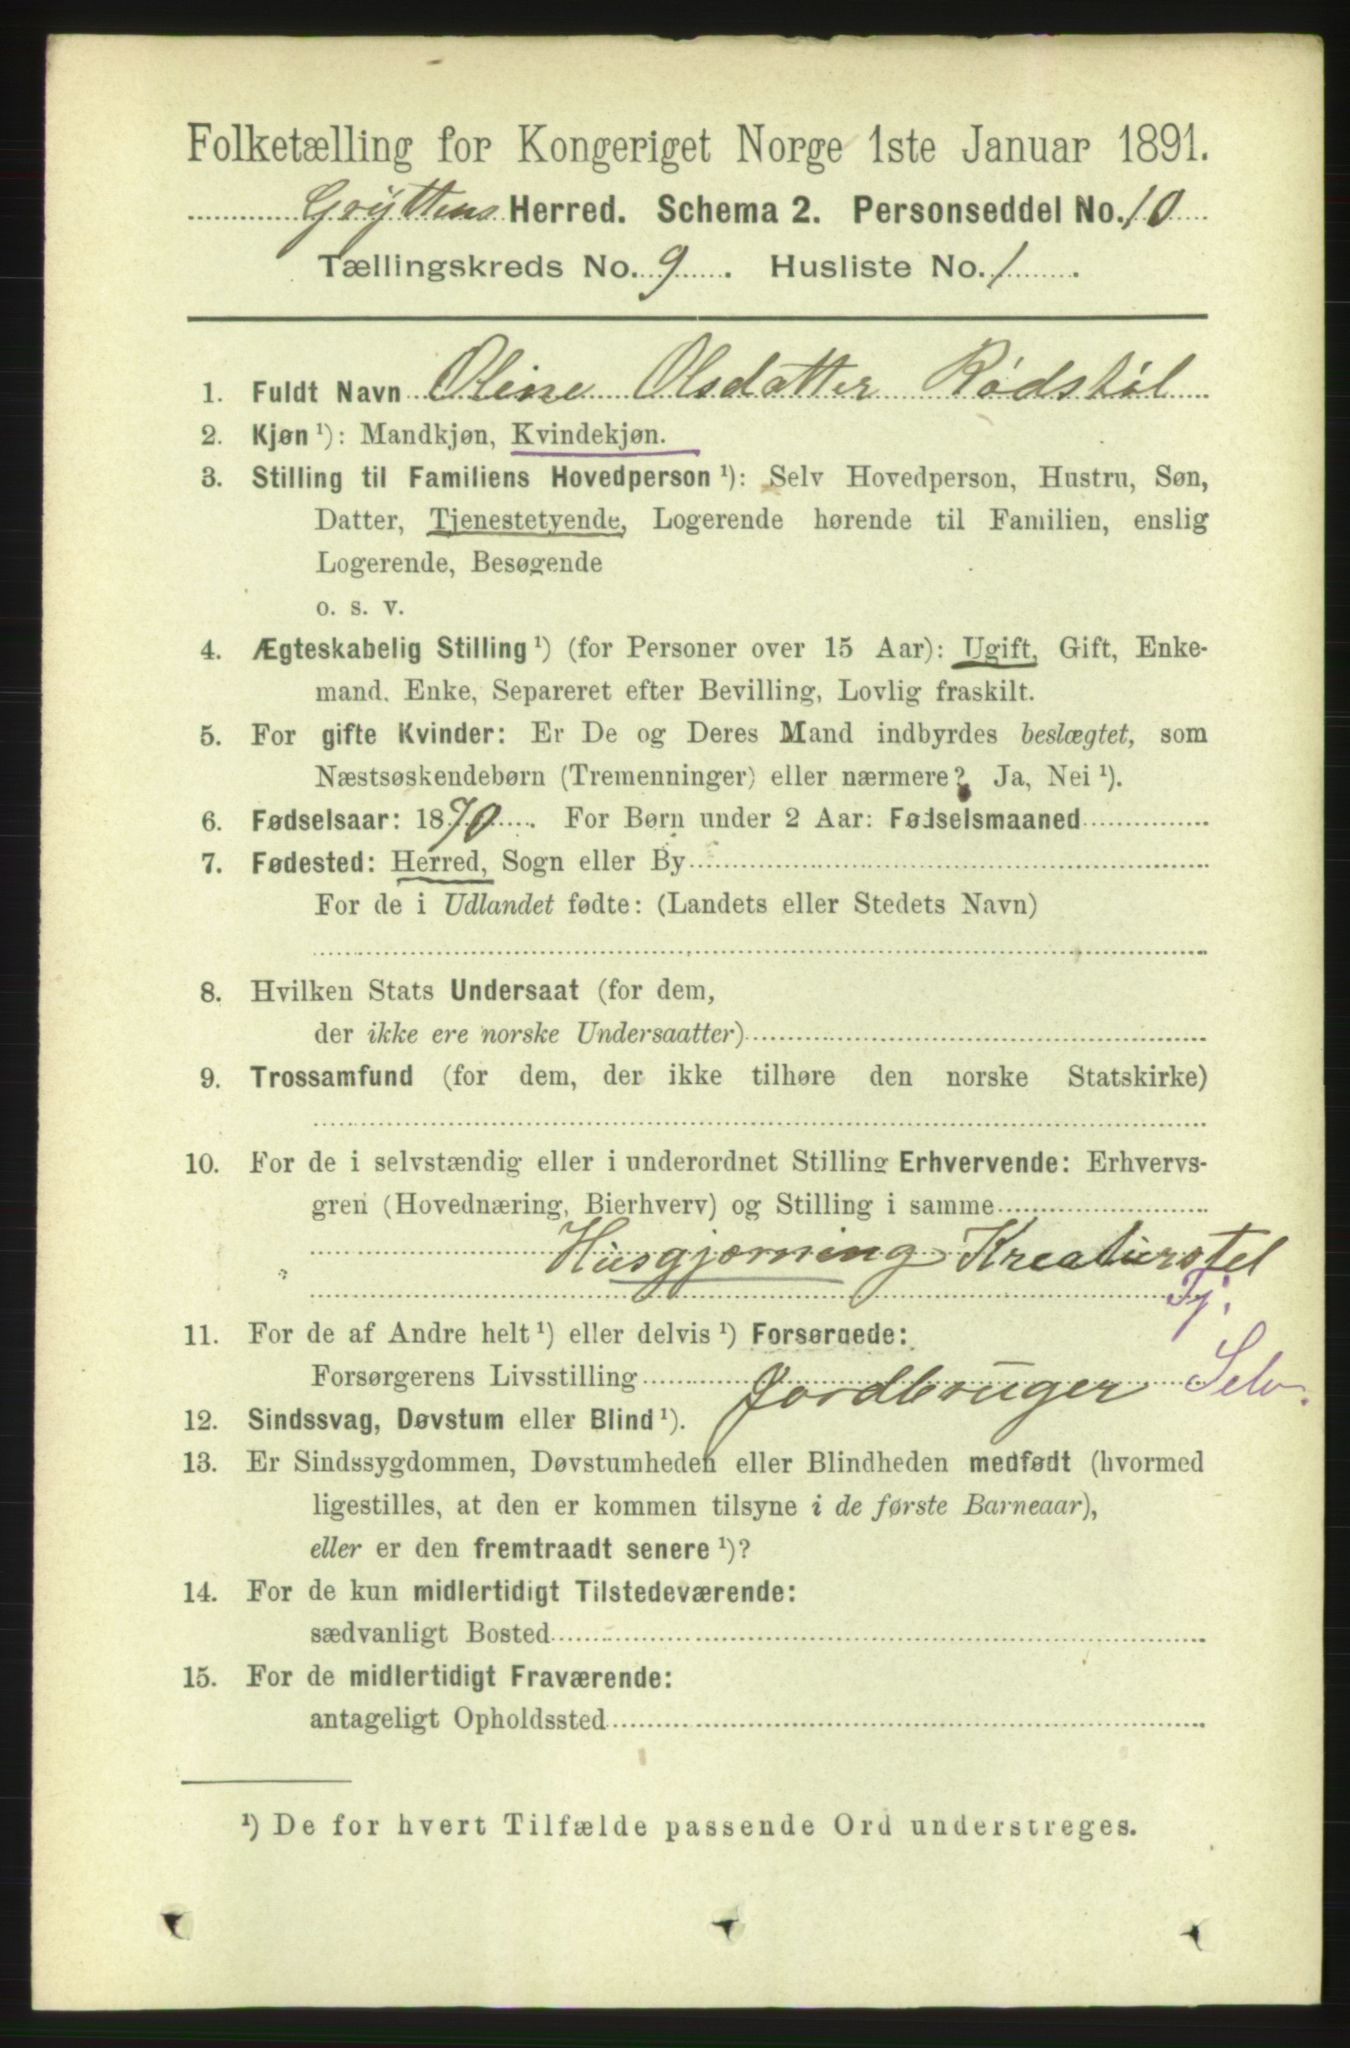 Folketælling for Kongeriget Norge 1ste Januar 1891.
Gryttens Herred. Schema 2. Personseddel No. 10
Tællingskreds No. 9. Husliste No. 1.
1. Fuldt Navn Oline Olsdatter Rødstøl
2. Kjøn ¹): Mandkjøn, Kvindekjøn.
3. Stilling til Familiens Hovedperson ¹): Selv Hovedperson, Hustru, Søn,
Datter, Tjenestetyende, Logerende hørende til Familien, enslig
Logerende, Besøgende
o. s. v.
4. Ægteskabelig Stilling ¹) (for Personer over 15 Aar): Ugift, Gift, Enke-
mand, Enke, Separeret efter Bevilling, Lovlig fraskilt.
5. For gifte Kvinder: Er De og Deres Mand indbyrdes beslægtet, som
Næstsøskendebørn (Tremenninger) eller nærmere? Ja, Nei ¹).
6. Fødselsaar: 1870. For Børn under 2 Aar: Fødselsmaaned
7. Fødested: Herred, Sogn eller By
For de i Udlandet fødte: (Landets eller Stedets Navn)
8. Hvilken Stats Undersaat (for dem,
der ikke ere norske Undersaatter)
9. Trossamfund (for dem, der ikke tilhøre den norske Statskirke)
10. For de i selvstændig eller i underordnet Stilling Erhvervende: Erhvervs-
gren (Hovednæring, Bierhverv) og Stilling i samme
Husgjørning Kreaturstel
Tj.
11. For de af Andre helt ¹) eller delvis ¹) Forsørgede:
Forsørgerens Livsstilling Jordbruger Selv.
12. Sindssvag, Døvstum eller Blind ¹).
13. Er Sindssygdommen, Døvstumheden eller Blindheden medfødt (hvormed
ligestilles, at den er kommen tilsyne i de første Barneaar),
eller er den fremtraadt senere ¹)?
14. For de kun midlertidigt Tilstedeværende:
sædvanligt Bosted
15. For de midlertidigt Fraværende:
antageligt Opholdssted
¹) De for hvert Tilfælde passende Ord understreges.